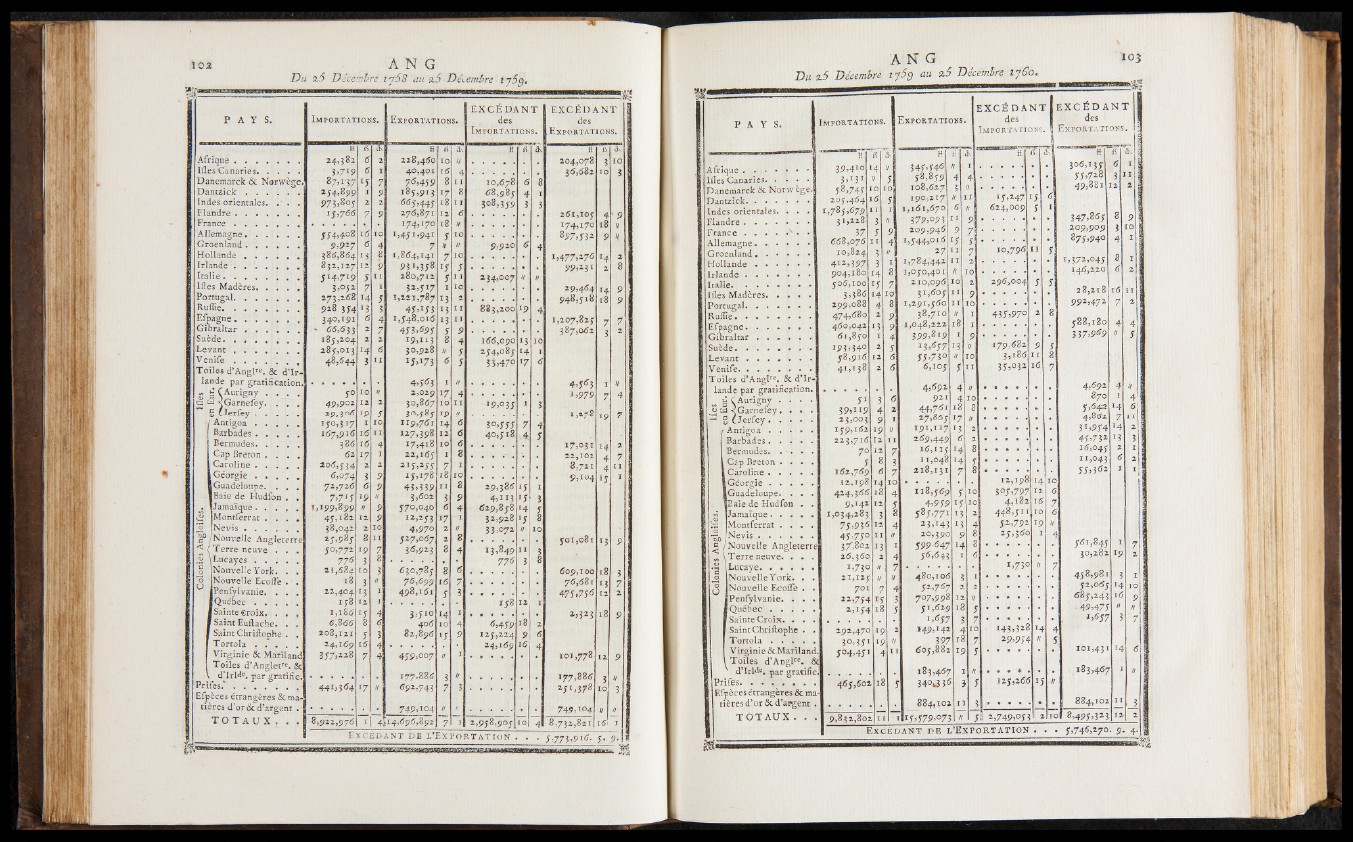 102 ANG
Du 25 Décembre 1758 au 25 Décembre 1759.
PAYS. IMPORTATIONS. EXPORTATIONS. EXCÉDANT des IMPORTATIONS. EXCÉDANT des EXPORTATIONS.
Afrique 24,382 6 2 228,460 10 " 204,078 3 10
Isles Canaries 3,719 6 1 40,401 16 4 36,682 10 3
Danemarck & Norwège. 87,137 15 7 76,459 8 11 10,678 6 8
Dantzick 254,899 1 9 185,913 17 8 68,985 4 1
Indes orientales. 973,805 2 2 665,445 18 11 308,359 3 3
Flandre 15,766 7 9 276,871 12 6 261,105 4 9
France 174,170 18 " 174,170 18 "
Allemagne 554,408 16 10 1,451,941 5 10 897,532 9 "
Groenland 9,927 6 4 7 " " 9,920 6 4
Hollande 386,864 13 8 1,864,141 7 10 1,477,276 14 2
Irlande 832,127 12 9 931,358 15 5 99,231 2 8
Italie 514,719 5 11 280,712 5 11 234,007 " "
Isles Madères. 3,052 7 1 32,517 1 10 29,464 14 9
Portugal. 273,268 14 5 1,221,787 13 2 948,518 18 9
Russie. 928,354 13 3 45,153 13 11 883,200 19 4
Espagne 340,191 6 4 1,548,016 13 11 1,207,825 7 7
Gibraltar 66,633 2 7 453,695 5 9 387,062 3 2
Suède. 185,204 2 2 19,113 8 4 166,090 13 10
Levant 285,013 14 6 30,928 " 5 254,085 14 1
Venise 48,644 3 11 15,173 6 5 33,470 17 6
Toiles d'Angl.re & d'Irlande par gratification. 4,563 1 " 4,563 1 "
Isles en Eur.
Aurigny 50 10 " 2,029 17 4 1,979 7 4
Garnesey. 49,902 12 2 30,867 10 11 19,035 1 3
Jersey 29,306 19 5 30,585 19 " 1,278 19 7
Colonies Angloises.
Antigoa 150,317 1 10 119,761 14 6 30,555 7 4
Barbades 167,916 16 11 127,398 12 6 40,518 4 5
Bermudes. 386 16 4 17,418 10 6 17,031 14 2
Cap Breton 62 17 1 22,165 1 8 22,102 4 7
Caroline 206,534 2 2 215,255 7 1 8,721 4 11
Géorgie 6,074 3 9 15,178 18 10 9,104 15 1
Guadeloupe. 72,726 6 9 43,339 11 8 29,386 15 1
Baie de Hudson 7,715 19 " 3,602 3 9 4,113 15 3
Jamaïque 1,199,899 " 9 570,040 6 4 629,858 14 5
Montserrat 45,182 12 9 12,253 17 1 32,928 15 8
Nevis 38,042 2 10 4,970 2 " 33,072 " 10
Nouvelle Angleterre 25,985 8 11 527,067 2 8 501,081 13 9
Terre neuve 50,772 19 7 36,923 8 4 13,849 11 3
Lucayes 776 3 8 776 3 8
Nouvelle York. 21,684 10 3 630,785 8 6 609,100 18 3
Nouvelle Ecosse 18 3 " 76,699 16 7 76,681 13 7
Pensylvanie. 22,404 13 1 498,161 5 3 475,756 12 2
Québec 158 12 1 158 12 1
Sainte Croix. 1,186 15 4 3,510 14 1 2,323 18 9
Saint Eustache. 6,866 8 6 406 10 4 6,459 18 2
Saint Christophe 208,121 5 3 82,896 15 9 125,224 9 6
Tortola 24,169 16 4 24,169 16 4
Virginie & Mariland 357,228 7 4 459,007 " 1 101,778 12 9
Toiles d'Anglet.re. & d'Irl.de. par gratific. 177,886 3 " 177,886 3 "
Prises. 441,364 17 " 692,743 7 3 251,378 10 3
Espèces étrangères & matières d'or & d'argent 749,104 " " 749,104 " "
TOTAUX 8,922,976 1 4 14,696,892 7 1 2,958,905 10 4 8,732,821 16 1
EXCÉDANT DE L'EXPORTATION 5,773,916. 5. 9.
ANG 103
Du 25 Décembre 1759 au 25 Décembre 1760.
PAYS. IMPORTATIONS. EXPORTATIONS. EXCÉDANT des IMPORTATIONS. EXCÉDANT des EXPORTATIONS.
Afrique 39,410 14 " 345,546 " 1 306,135 6 1
Isles Canaries. 3,131 " 5 58,859 4 4 55,728 3 11
Danemarck & Norwège. 58,745 10 10 108,627 3 " 49,881 12 2
Dantzick. 205,464 16 5 190,217 " 11 15,247 15 6
Indes orientales. 1,785,679 11 1 1,161,670 6 " 624,009 5 1
Flandre 31,228 3 " 379,093 11 9 347,865 8 9
France 37 5 9 209,946 9 7 209,909 3 10
Allemagne. 668,076 11 4 1,544,016 15 5 875,940 4 1
Groenland. 10,824 3 " 27 11 7 10,796 11 5
Hollande 412,397 3 1 1,784,442 11 2 1,372,045 8 1
Irlande 904,180 14 8 1,050,401 " 10 146,220 6 2
Italie. 506,100 15 7 210,096 10 2 296,004 5 5
Isles Madères. 3,386 14 10 31,605 11 9 28,218 16 11
Portugal. 299,088 4 8 1,291,560 11 10 992,472 7 2
Russie. 474,680 2 9 38,710 " 1 435,970 2 8
Espagne. 460,042 13 9 1,048,222 18 1 588,180 4 4
Gibraltar 61,850 1 4 399,819 1 9 337,969 " 5
Suède. 193,340 2 5 13,657 13 " 179,682 9 5
Levant 58,916 12 6 55,730 " 10 3,186 11 8
Venise. 41,138 2 6 6,105 5 11 35,032 16 7
Toiles d'Angl.re. & d'Irlande par gratification. 4,692 4 " 4,692 4 "
Isles en Eur.
Aurigny 51 3 6 921 4 10 870 1 4
Garnesey. 39,119 4 2 44,761 18 8 5,642 14 6
Jersey. 23,003 9 1 27,865 17 " 4,862 7 11
Colonies Angloises.
Antigoa 159,162 19 " 191,117 13 2 31,954 14 2
Barbades. 223,716 12 11 269,449 6 2 45,732 13 3
Bermudes. 70 12 7 16,115 14 8 16,045 2 1
Cap Breton 5 8 3 11,048 14 5 11,043 6 2
Caroline 162,769 6 7 218,131 7 8 55,362 1 1
Géorgie 12,198 14 10 12,198 14 10
Guadeloupe. 424,366 18 4 118,569 5 10 305,797 12 6
Baie de Hudson 9,142 12 5 4,959 15 10 4,182 16 7
Jamaïque 1,034,283 3 8 585,771 13 2 448,511 10 6
Montserrat 75,936 12 4 23,143 13 4 52,792 19 "
Nevis 45,750 11 " 20,390 9 8 25,360 1 4
Nouvelle Angleterre 37,802 13 1 599,647 14 8 561,845 1 7
Terre neuve. 26,360 2 4 56,643 1 6 30,282 19 2
Lucaye. 1,730 " 7 1,730 " 7
Nouvelle York. 21,125 " " 480,106 3 1 458,981 3 1
Nouvelle Ecosse 701 7 4 52,767 2 2 52,065 14 10
Pensylvanie. 22,754 15 3 707,998 12 " 685,243 16 9
Québec 2,154 18 5 51,629 18 5 49,475 " "
Sainte Croix. 1,657 3 7 1,657 3 7
Saint Christophe 292,470 19 2 149,142 4 10 143,328 14 4
Tortola 30,351 19 " 397 18 7 29,954 " 5
Virginie & Mariland. 504,451 4 11 605,882 19 5 101,431 14 6
Toiles d'Angl.re. & d'Irl.de. par gratific. 183,467 1 " 183,467 1 "
Prises. 465,602 18 5 340,336 3 5 125,266 15 "
Espèces étrangères & matières d'or & d'argent 884,102 11 3 884,102 11 3
TOTAUX 9,832,802 11 1 15,579,073 " 5 2,749,053 2 10 8,495,323 12 2
EXCÉDANT DE L'EXPORTATION 5,746,270. 9. 4.